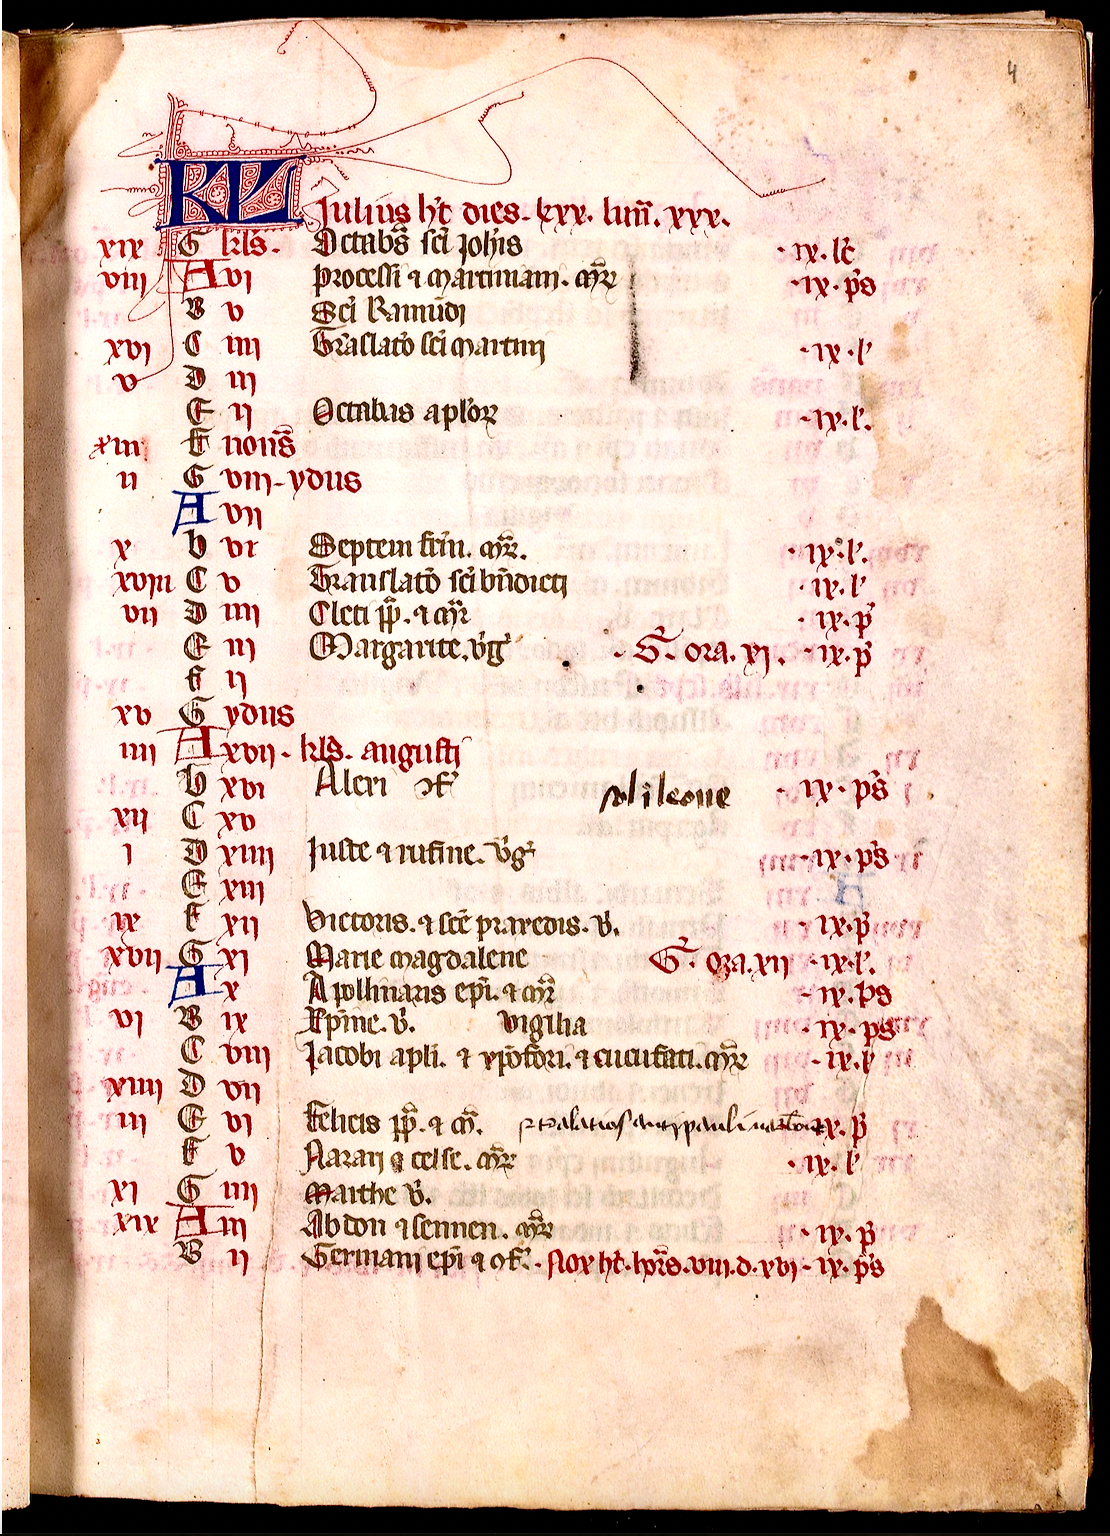 4
KL Julius ht dies. xxx. lun. xxx.
xix G kls. Octabs sci Johis .ix.lc
viii A vi Processi ⁊ martiniani. mr .ix.ps
B v Sci Ramudi
xvi C iiii Traslato sci martini .ix.l
v D iii
E ii Octabas aplor .ix.l.
xiii F nonis
ii G viii. ydus
A vii
x b vi Septem frm. mr. .ix.l.
xviii C v Translato sci bndicti .ix.l
vii D iiii Cleti pp. ⁊ mr .ix.p
E iii Margarite. vg S. ora. xi. .ix.p
F ii
xv G ydus
iiii A xvii. kls. augusti
b xvi Alexi cf .ix.ps
xii C xv
i D xiiii Juste ⁊ rufine. vg .ix.ps
E xiii
ix F xii Victoris. ⁊ sce praxedis. v. .ix.p
xvii G xi Marie magdalene S. ora. xii .ix.l.
A x Apollinaris epi. ⁊ mr .ix.ps
vi B ix Xpine. v. vigilia .ix.ps
C viii Jacobi apli. ⁊ xpofori. ⁊ cucufati. mr .ix.l
xiiii D vii
iii E vi Felicis pp. ⁊ m. .ix.p
F v Nazarii ⁊ celse. mr .ix.l
xi G iiii Marthe v.
xix A iii Abdon ⁊ sennen. mr .ix.p
B ii Germani epi ⁊ cf. Nox ht. hors. viii. d. xvi .ix.ps